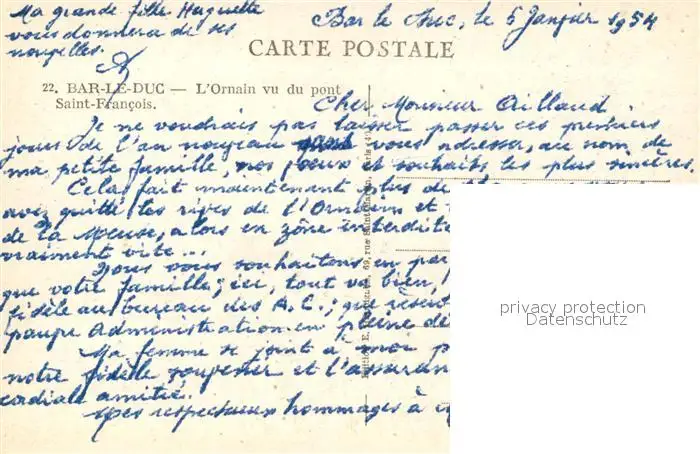 Ma grande fille Huguette
vous donnera de ses
nouvelles.
Bar le Duc, le 5 Janvier 1954
CARTE POSTALE
22. BAR-LE-DUC — L'Ornain vu du pont
Saint-François.
Cher Monsieur Aillaud.
Je ne voudrais pas laisser passer ces premiers
jours de l'an nouveau sans vous adresser, au nom de
ma petite famille, nos vœux et souhaits les plus sincères.
Cela fait maintenant plus de
avez quitté les rives de l'Ornain et
de la Meuse, alors en zône interdite
vraiment vite...
Nous vous souhaitons en
que votre famille; ici, tout va bien,
fidèle au bureau des A.C.,
pauvre Administration en pleine
Ma femme se joint à moi
notre fidèle souvenir et
cordiale amitié.
Mes respectueux hommages à
privacy protection
Datenschutz